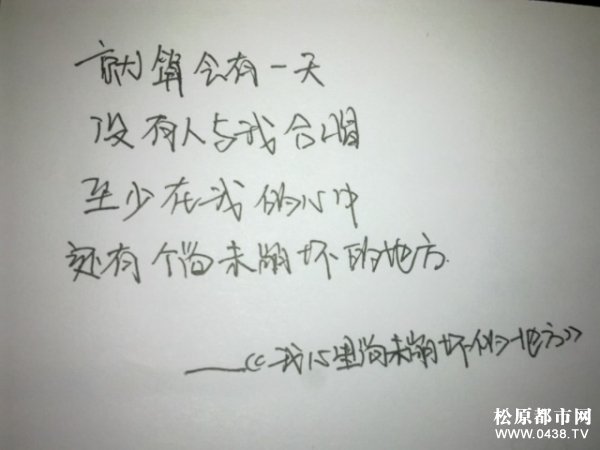 就算会有一天
没有人与我合唱
至少在我的心中
还有个尚未崩坏的地方
——《我心里尚未崩坏的地方》
松原都市网
WWW.0438.TV